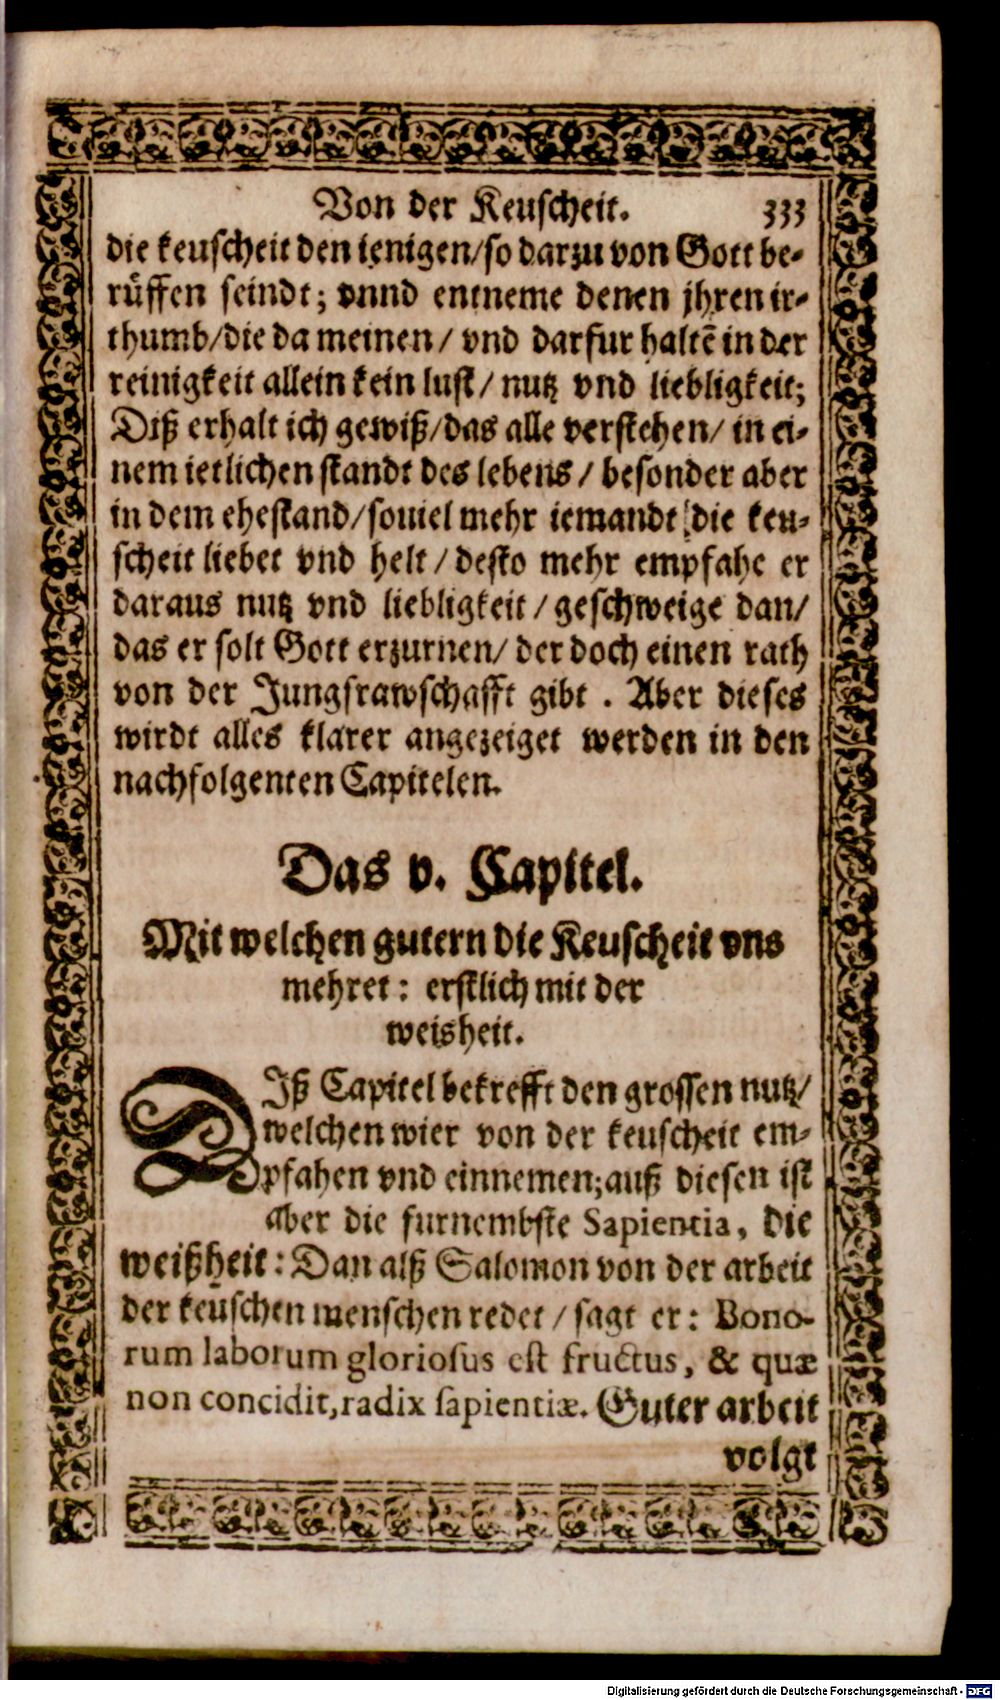 Von der Keuscheit. 333
die keuscheit den ienigen/so darzu von Gott be-
rüffen seindt; vnnd entneme denen jhren ir-
thumb/die da meinen/ vnd darfur haltẽ in der
reinigkeit allein kein lust/ nutz vnd liebligkeit;
Diß erhalt ich gewiß/das alle verstehen/ in ei-
nem ietlichen standt des lebens/ besonder aber
in dem ehestand/souiel mehr iemandt die keu-
scheit liebet vnd helt/ desto mehr empfahe er
daraus nutz vnd liebligkeit/ geschweige dan/
das er solt Gott erzurnen/ der doch einen rath
von der Jungfrawschafft gibt. Aber dieses
wirdt alles klarer angezeiget werden in den
nachfolgenten Capitelen.
Das v. Capitel.
Mit welchen gutern die Keuscheit vns
mehret: erstlich mit der
weisheit.
DIß Capitel betrefft den grossen nutz/
welchen wier von der keuscheit em-
pfahen vnd einnemen; auß diesen ist
aber die furnembste Sapientia, die
weißheit: Dan alß Salomon von der arbeit
der keuschen menschen redet/ sagt er: Bono-
rum laborum gloriosus est fructus, & quæ
non concidit, radix sapientiæ. Guter arbeit
volgt
Digitalisierung gefördert durch die Deutsche Forschungsgemeinschaft - DFG